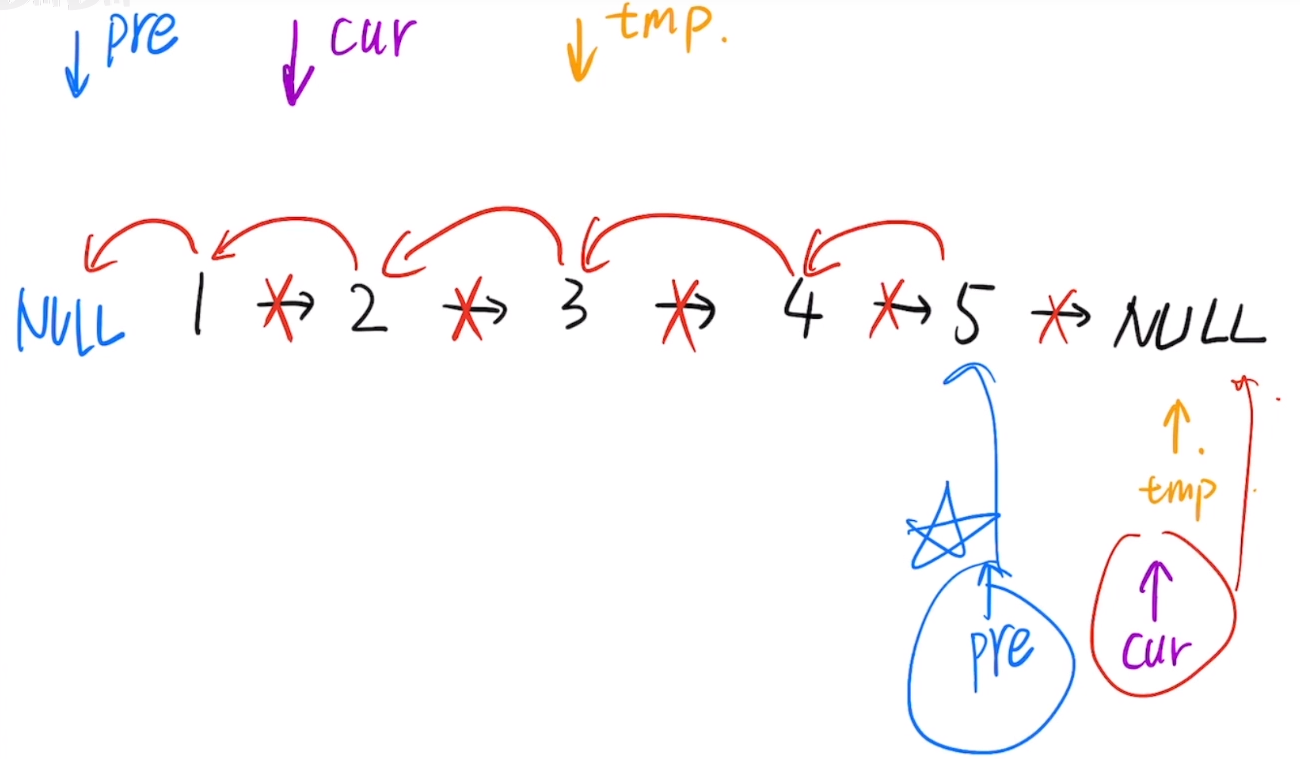 pre cur tmp.
NULL 1 → 2 → 3 → 4 → 5 → NULL
tmp
pre cur